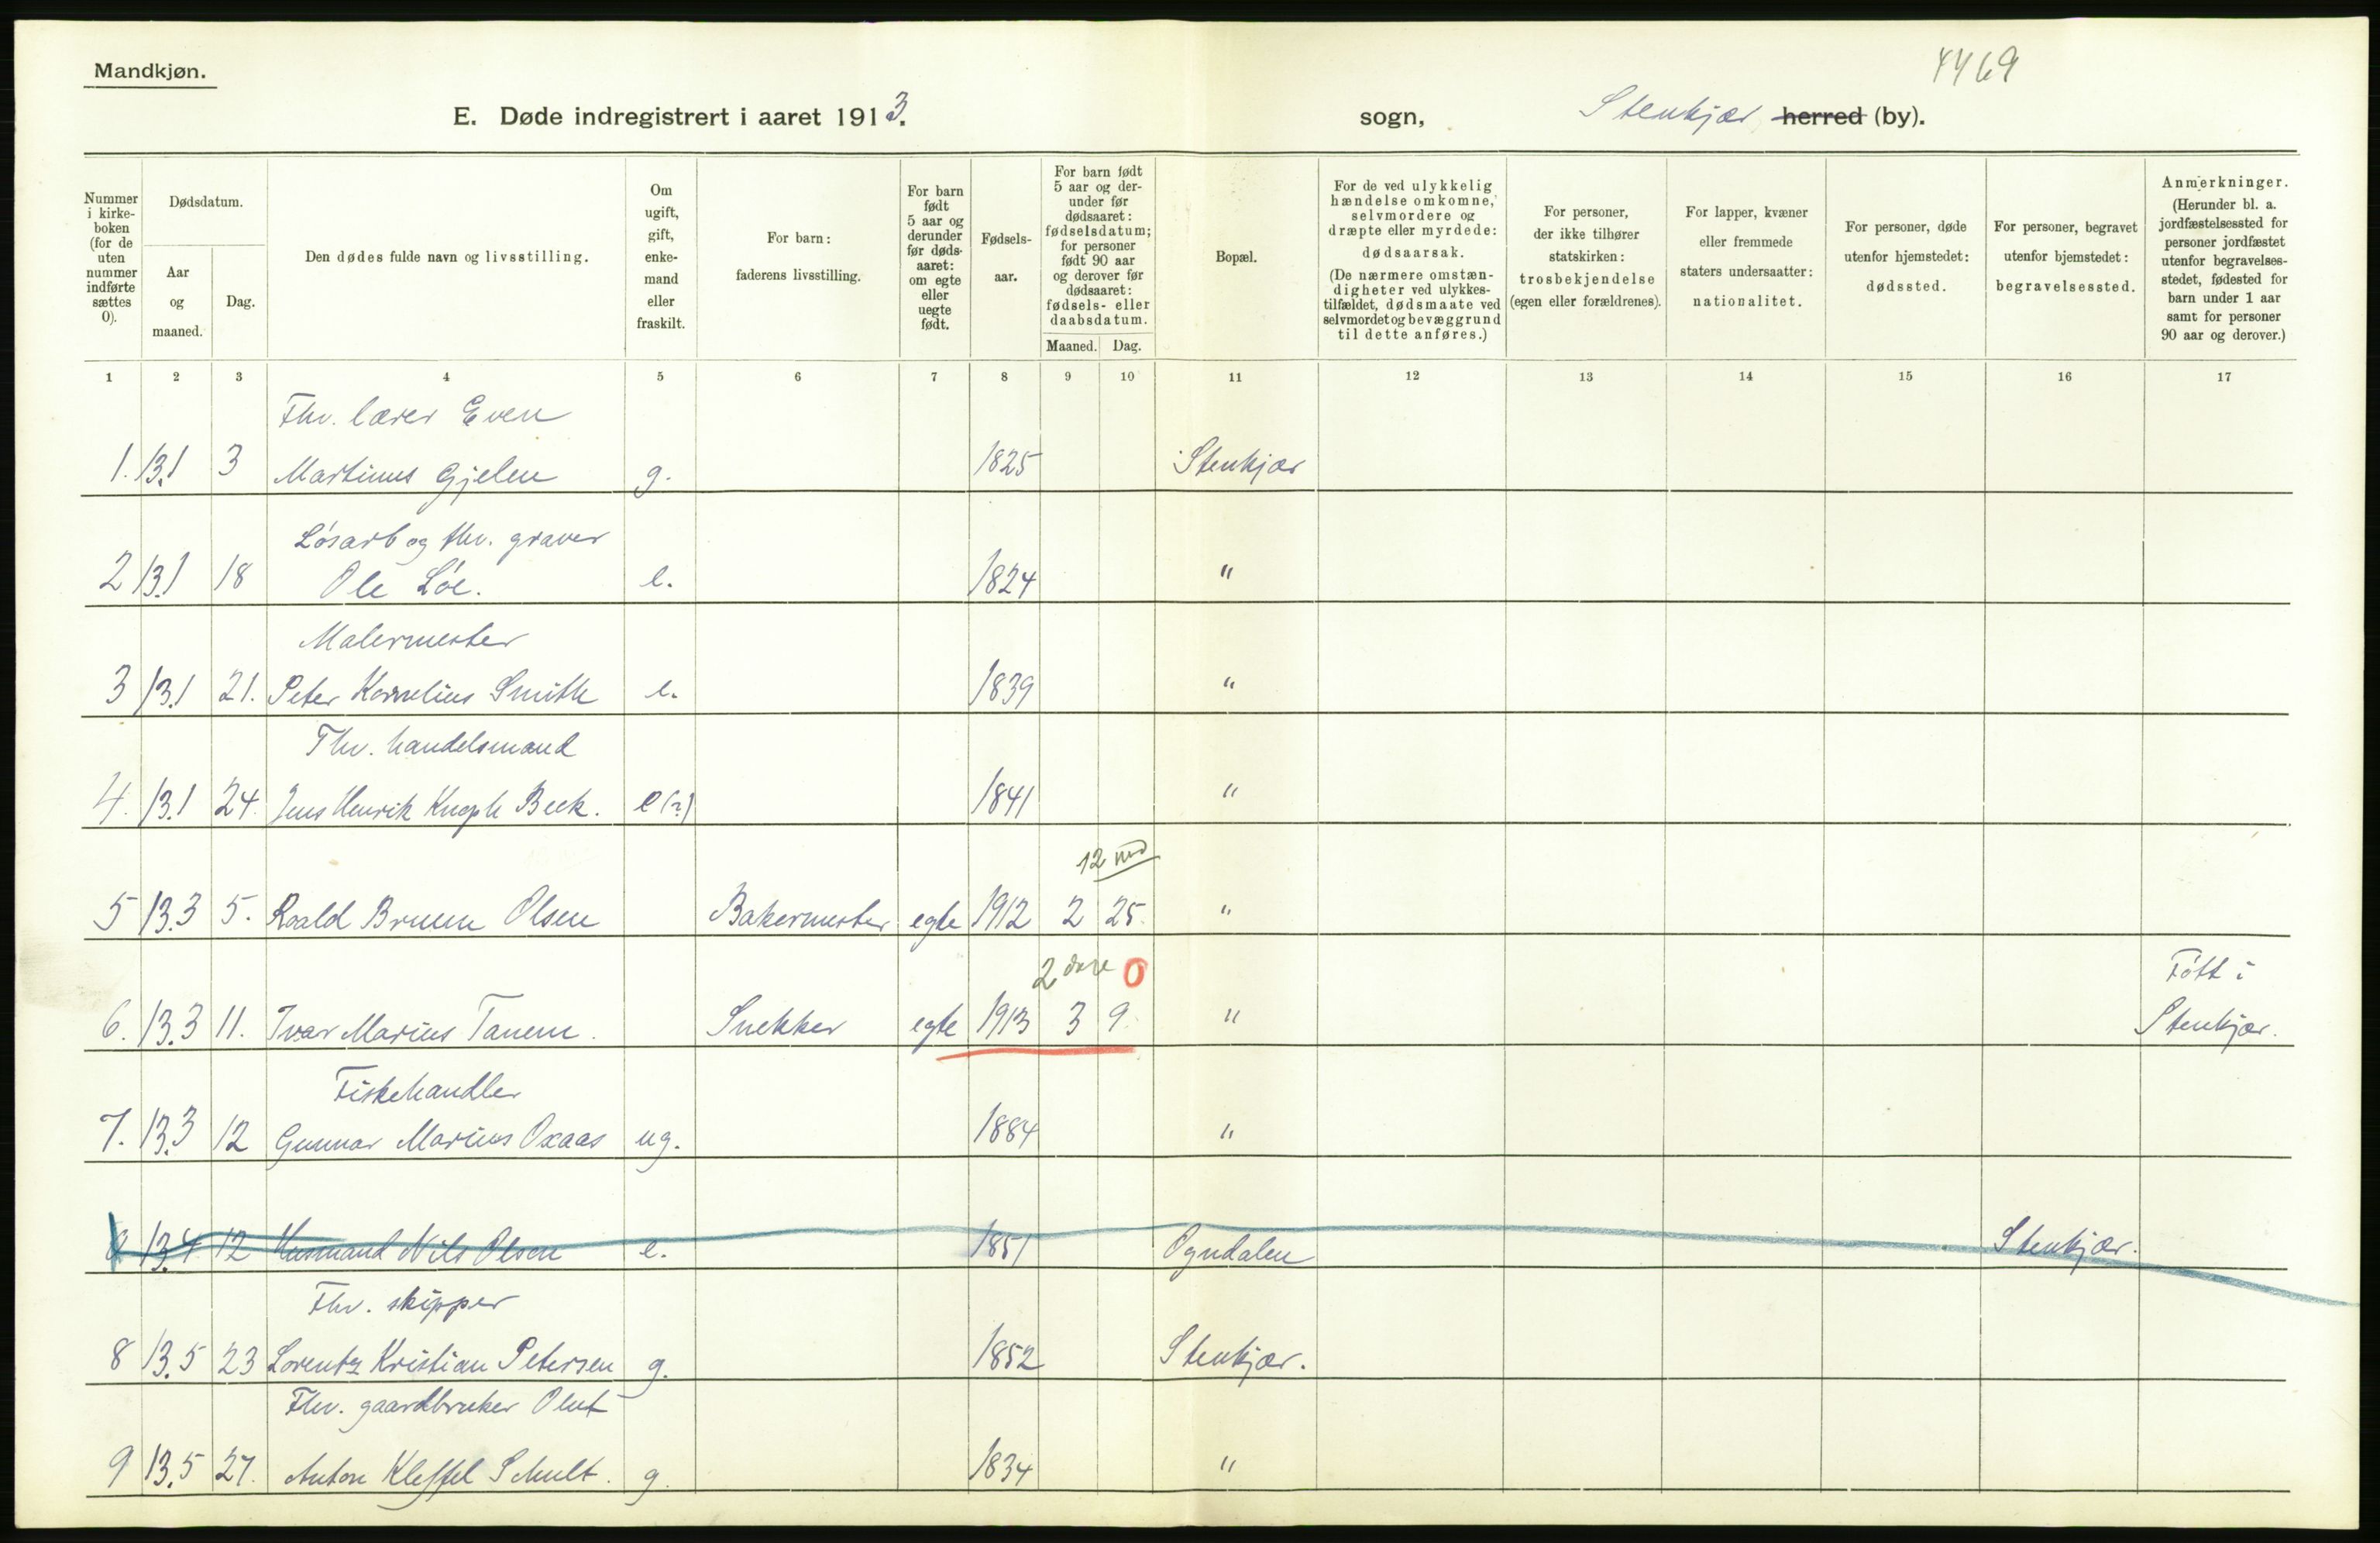 Mandkjøn.
4469
E. Døde indregistrert i aaret 1913. sogn, Stenkjær herred (by).
Nummer i kirke-boken (for de uten nummer indførte sættes 0).
Dødsdatum.
Aar og maaned.
Dag.
Den dødes fulde navn og livsstilling.
Om ugift, gift, enke-mand eller fraskilt.
For barn: faderens livsstilling.
For barn født 5 aar og derunder før døds-aaret: om egte eller uegte født.
Fødsels-aar.
For barn født 5 aar og der-under før dødsaaret: fødselsdatum; for personer født 90 aar og derover før dødsaaret: fødsels- eller daabsdatum.
Maaned. Dag.
Bopæl.
For de ved ulykkelig hændelse omkomne, selvmordere og dræpte eller myrdede: dødsaarsak. (De nærmere omstæn-digheter ved ulykkes-tilfældet, dødsmaate ved selvmordet og bevæggrund til dette anføres.)
For personer, der ikke tilhører statskirken: trosbekjendelse (egen eller forældrenes).
For lapper, kvæner eller fremmede staters undersaatter: nationalitet.
For personer, døde utenfor hjemstedet: dødssted.
For personer, begravet utenfor hjemstedet: begravelsessted.
Anmerkninger. (Herunder bl. a. jordfæstelsessted for personer jordfæstet utenfor begravelses-stedet, fødested for barn under 1 aar samt for personer 90 aar og derover.)
1 2 3 4 5 6 7 8 9 10 11 12 13 14 15 16 17
Fhv. lærer Even
1. 13.1 3 Martinus Gjelen g. 1825 Stenkjær
Løsarb og fhv. graver
2 13.1 18 Ole Løe. e. 1824 "
Malermester
3 13.1 21. Peter Kornelius Smith e. 1839 "
Fhv. handelsmand
4. 13.1 24. Jens Henrik Knoph Beck. e(?) 1841 "
12 md
5 13.3 5. Roald Bruem Olsen Bakermester egte 1912 2 25. "
2 dage 0 Født i
6. 13.3 11. Ivar Marius Tanem. Snekker egte 1913 3 9. " Stenkjær.
Fiskehandler
7. 13.3 12 Gunnar Marius Oxaas ug. 1884 "
8 13.4 12 Husmand Nils Olsen e. 1851 Ogndalen Stenkjær.
Fhv. skipper
8 13.5 23 Lorentz Kristian Petersen g. 1852 Stenkjær.
Fhv. gaardbruker Oluf
9 13.5 27. Anton Kleffel Schult. g. 1834 "